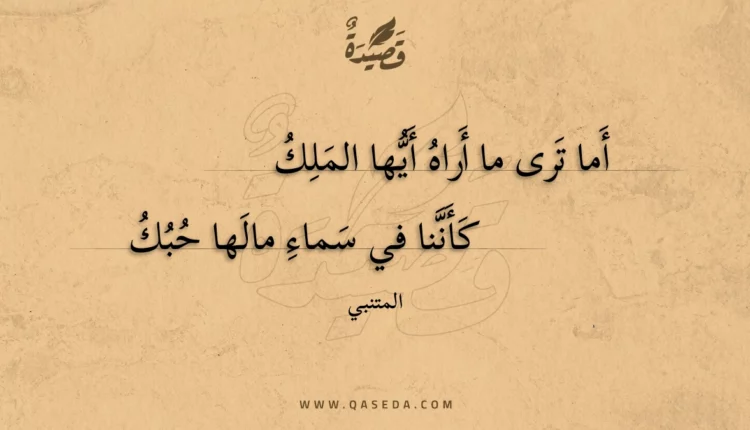 قَصِيْدَةٌ
أَما تَرى ما أَراهُ أَيُّها المَلِكُ
كَأَنَّنا في سَماءِ مالَها حُبُكُ
المتنبي
WWW.QASEDA.COM